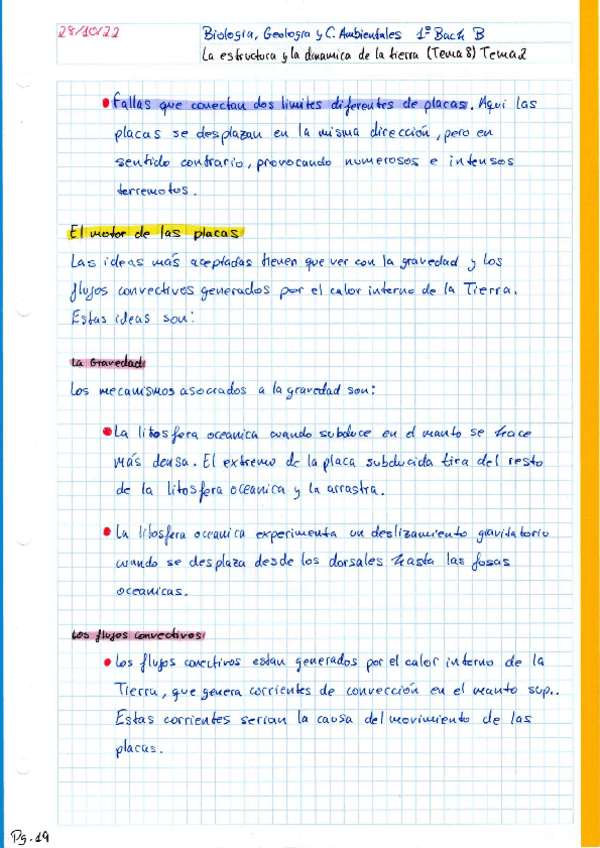 28/10/22
Biología, Geología y C. Ambientales 1º Bach B
La estructura y la dinamica de la tierra (Tema 8) Tema 2
Fallas que conectan dos limites diferentes de placas. Aqui las
placas se desplazan en la misma dirección, pero en
sentido contrario, provocando numerosos e intensos
terremotos.
El motor de las placas
Las ideas más aceptadas tienen que ver con la gravedad y los
flujos convectivos generados por el calor interno de la Tierra.
Estas ideas son:
La Gravedad
Los mecanismos asociados a la gravedad son:
La litosfera oceanica cuando subduce en el manto se hace
más densa. El extremo de la placa subducida tira del resto
de la litosfera oceanica y la arrastra.
La litosfera oceanica experimenta un deslizamiento gravitatorio
cuando se desplaza desde los dorsales hasta las fosas
oceanicas.
Los flujos convectivos
Los flujos conectivos estan generados por el calor interno de la
Tierra, que genera corrientes de convección en el manto sup..
Estas corrientes serian la causa del movimiento de las
placas.
Pg. 19